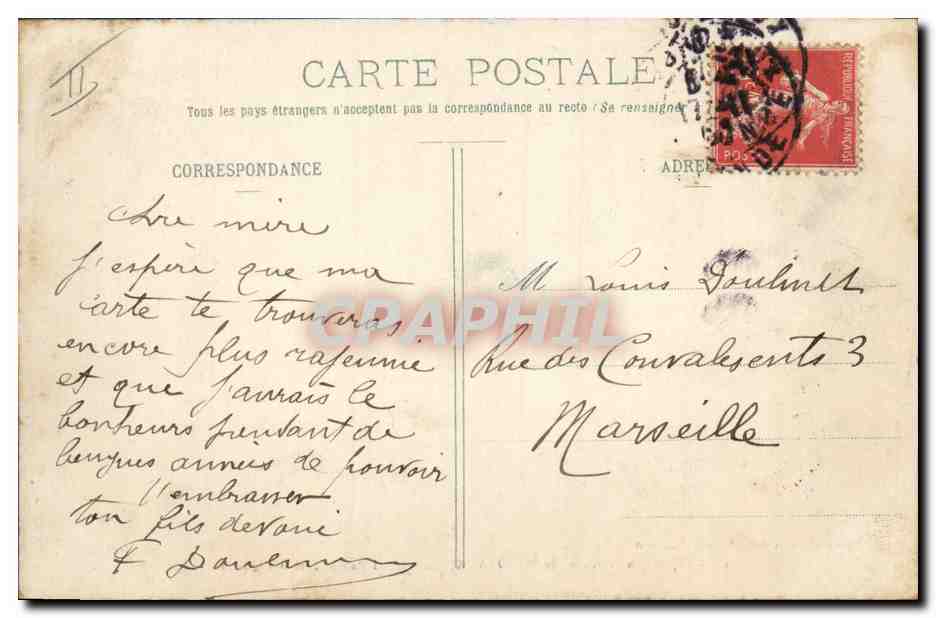 CARTE POSTALE
Tous les pays étrangers n'acceptent pas la correspondance au recto (Se renseigner
CORRESPONDANCE
Chre mère
j'espère que ma
carte te trouveras
encore plus rajeunie
et que j'aurais le
bonheurs pendant de
longues années de pouvoir
t'embrasser
ton fils devoué
ADRE
M Louis
Rue des Convalesents 3
Marseille
REPUBLIQUE FRANÇAISE
POS
CPAPHIL